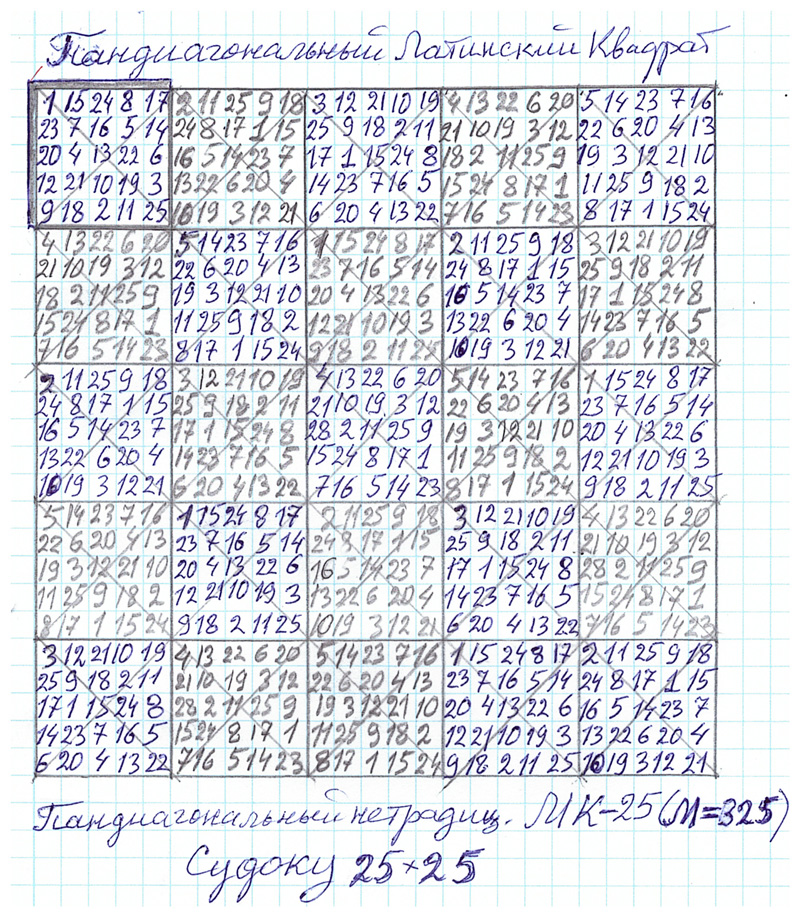 Пандиагональный Латинский Квадрат
1 15 24 8 17 2 11 25 9 18 3 12 21 10 19 4 13 22 6 20 5 14 23 7 16
23 7 16 5 14 24 8 17 1 15 25 9 18 2 11 21 10 19 3 12 22 6 20 4 13
20 4 13 22 6 16 5 14 23 7 17 1 15 24 8 18 2 11 25 9 19 3 12 21 10
12 21 10 19 3 13 22 6 20 4 14 23 7 16 5 15 24 8 17 1 11 25 9 18 2
9 18 2 11 25 10 19 3 12 21 6 20 4 13 22 7 16 5 14 23 8 17 1 15 24
4 13 22 6 20 5 14 23 7 16 1 15 24 8 17 2 11 25 9 18 3 12 21 10 19
21 10 19 3 12 22 6 20 4 13 23 7 16 5 14 24 8 17 1 15 25 9 18 2 11
18 2 11 25 9 19 3 12 21 10 20 4 13 22 6 16 5 14 23 7 17 1 15 24 8
15 24 8 17 1 11 25 9 18 2 12 21 10 19 3 13 22 6 20 4 14 23 7 16 5
7 16 5 14 23 8 17 1 15 24 9 18 2 11 25 10 19 3 12 21 6 20 4 13 22
2 11 25 9 18 3 12 21 10 19 4 13 22 6 20 5 14 23 7 16 1 15 24 8 17
24 8 17 1 15 25 9 18 2 11 21 10 19 3 12 22 6 20 4 13 23 7 16 5 14
16 5 14 23 7 17 1 15 24 8 28 2 11 25 9 19 3 12 21 10 20 4 13 22 6
13 22 6 20 4 14 23 7 16 5 15 24 8 17 1 11 25 9 18 2 12 21 10 19 3
10 19 3 12 21 6 20 4 13 22 7 16 5 14 23 8 17 1 15 24 9 18 2 11 25
5 14 23 7 16 1 15 24 8 17 2 11 25 9 18 3 12 21 10 19 4 13 22 6 20
22 6 20 4 13 23 7 16 5 14 24 8 17 1 15 25 9 18 2 11 21 10 19 3 12
19 3 12 21 10 20 4 13 22 6 16 5 14 23 7 17 1 15 24 8 28 2 11 25 9
11 25 9 18 2 12 21 10 19 3 13 22 6 20 4 14 23 7 16 5 15 24 8 17 1
8 17 1 15 24 9 18 2 11 25 10 19 3 12 21 6 20 4 13 22 7 16 5 14 23
3 12 21 10 19 4 13 22 6 20 5 14 23 7 16 1 15 24 8 17 2 11 25 9 18
25 9 18 2 11 21 10 19 3 12 22 6 20 4 13 23 7 16 5 14 24 8 17 1 15
17 1 15 24 8 28 2 11 25 9 19 3 12 21 10 20 4 13 22 6 16 5 14 23 7
14 23 7 16 5 15 24 8 17 1 11 25 9 18 2 12 21 10 19 3 13 22 6 20 4
6 20 4 13 22 7 16 5 14 23 8 17 1 15 24 9 18 2 11 25 10 19 3 12 21
Пандиагональный нетрадиц. МК-25 (М=325)
Судоку 25×25